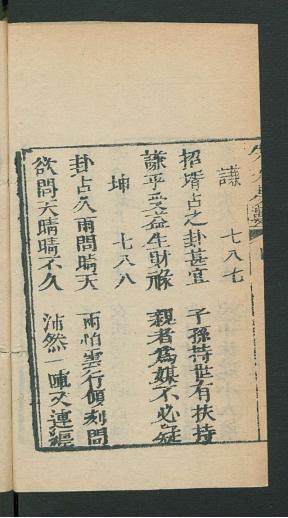 謙　七八七
招壻占之卦甚宜　子孫持世有扶持
謙乎受益生財祿　親者為媒不必疑
坤　七八八
卦占久雨問晴天　雨怕雲行傾刻間
欲問天晴晴不久　沛然一陣又連綿